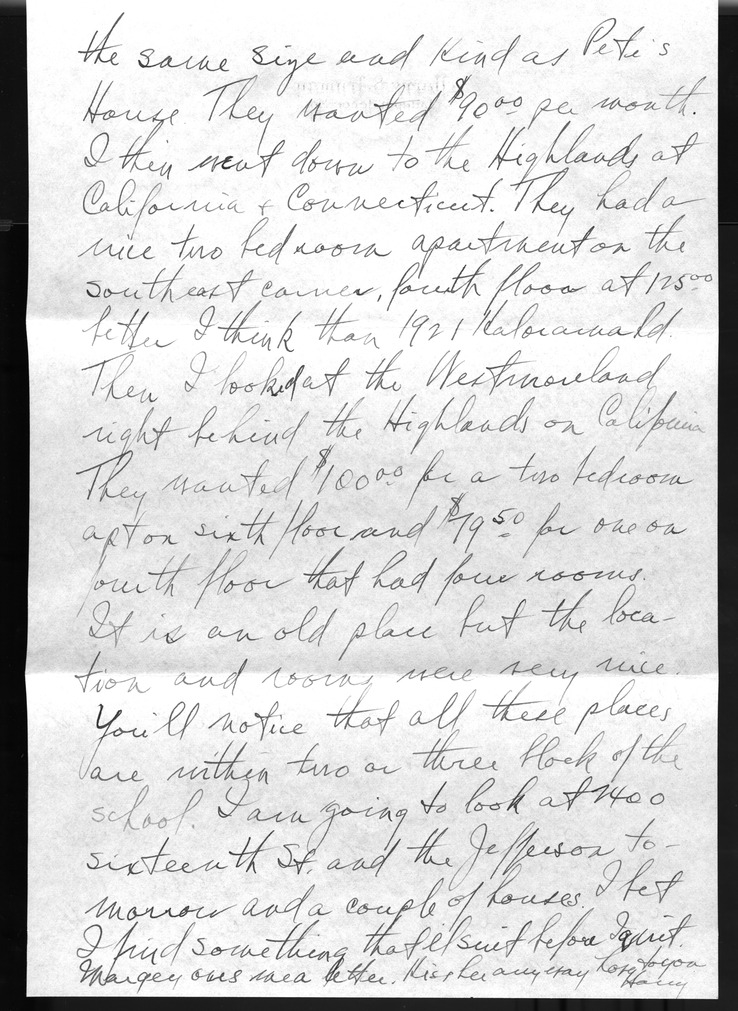 the same size and kind as Pete's
House. They wanted $90.00 per month.
I then went down to the Highlands at
California + Connecticut. They had a
nice two bedroom apartment on the
southeast corner, fourth floor at 125.00
better I think than 1921 Kalorama Rd.
Then I looked at the Westmoreland
right behind the Highlands on California
They wanted $100.00 for a two bedroom
apt on sixth floor and $79.50 for one on
fourth floor that had four rooms.
It is an old place but the loca-
tion and rooms were very nice.
You'll notice that all these places
are within two or three block of the
school. I am going to look at 2400
sixteenth St. and the Jefferson to-
morrow and a couple of houses. I bet
I find something that'll suit before I quit.
Margey owes me a letter. Kiss her anyway Love to you
Harry